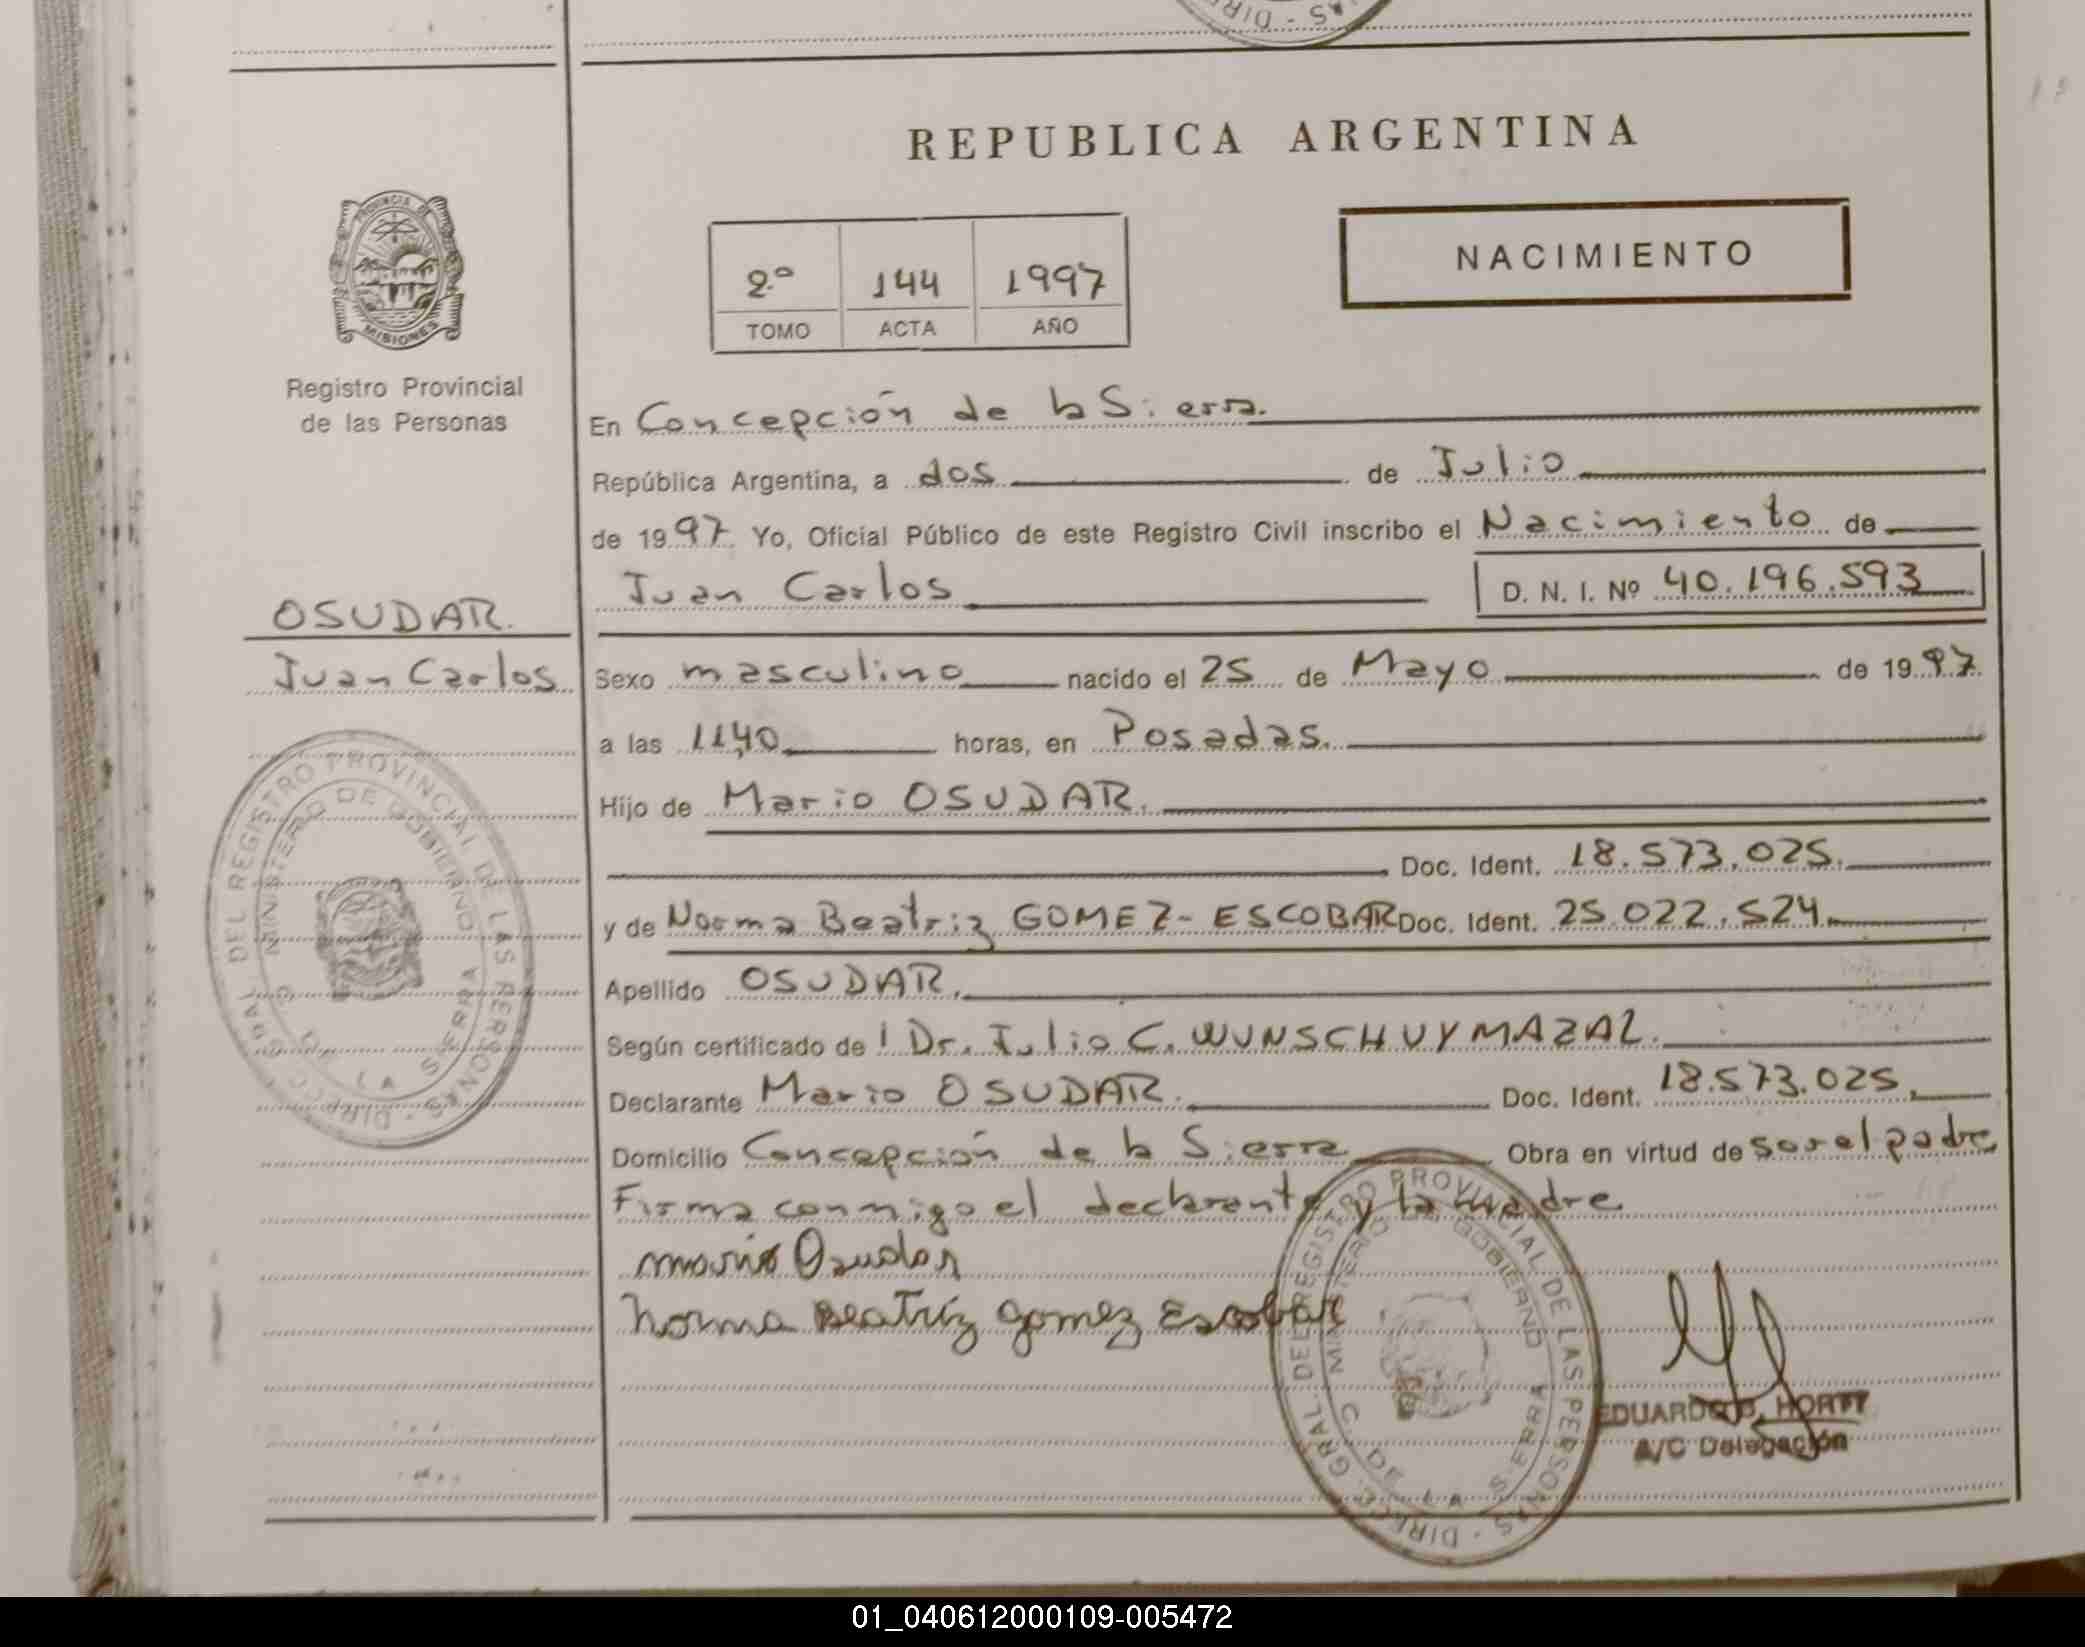 REPUBLICA ARGENTINA
PROVINCIA DE
MISIONES
Registro Provincial
de las Personas
NACIMIENTO
2º 144 1997
TOMO ACTA AÑO
En Concepción de la Sierra.
República Argentina, a dos de Julio
de 1997. Yo, Oficial Público de este Registro Civil inscribo el Nacimiento de
Juan Carlos D. N. I. Nº 40.196.593
OSUDAR.
Juan Carlos
Sexo masculino nacido el 25 de Mayo de 1997.
a las 11,40 horas, en Posadas.
Hijo de Mario OSUDAR.
Doc. Ident. 18.573.025.
y de Norma Beatriz GOMEZ-ESCOBAR Doc. Ident. 25.022.524.
Apellido OSUDAR.
Según certificado del Dr. Julio C. WUNSCH UYMAZAL.
Declarante Mario OSUDAR. Doc. Ident. 18.573.025.
Domicilio Concepción de la Sierra Obra en virtud de ser el padre
Firma conmigo el declarante y la madre
Mario Osudar
Norma Beatríz Gomez Escobar
DIRECC. GRAL. DEL REGISTRO PROVINCIAL DE LAS PERSONAS
MINISTERIO DE GOBIERNO
C. DE LA SIERRA
DIRECC. GRAL. DEL REGISTRO PROVINCIAL DE LAS PERSONAS
MINISTERIO DE GOBIERNO
C. DE LA SIERRA
EDUARDO HORTT
A/C Delegación
01_040612000109-005472